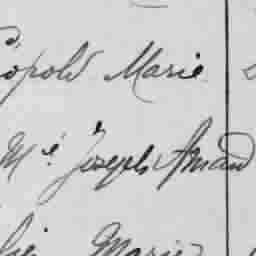 éopold Marie
M.ie Joseph Amand
Marie